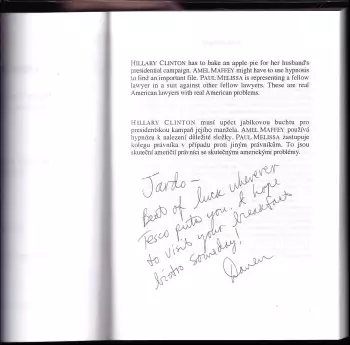 HILLARY CLINTON has to bake an apple pie for her husband's
presidential campaign. AMEL MAFFEY might have to use hypnosis
to find an important file. PAUL MELISSA is representing a fellow
lawyer in a suit against other fellow lawyers. These are real
American lawyers with real American problems.
HILLARY CLINTON musí upéct jablkovou buchtu pro
prezidentskou kampaň jejího manžela. AMEL MAFFEY používá
hypnózu k nalezení důležité složky. PAUL MELISSA zastupuje
kolegu právníka v případu proti jiným právníkům. To jsou
skuteční američtí právníci se skutečnými americkými problémy.
Jardo –
Best of luck wherever
Tesco puts you. I hope
to visit your breakfast
bistro someday!
Daren